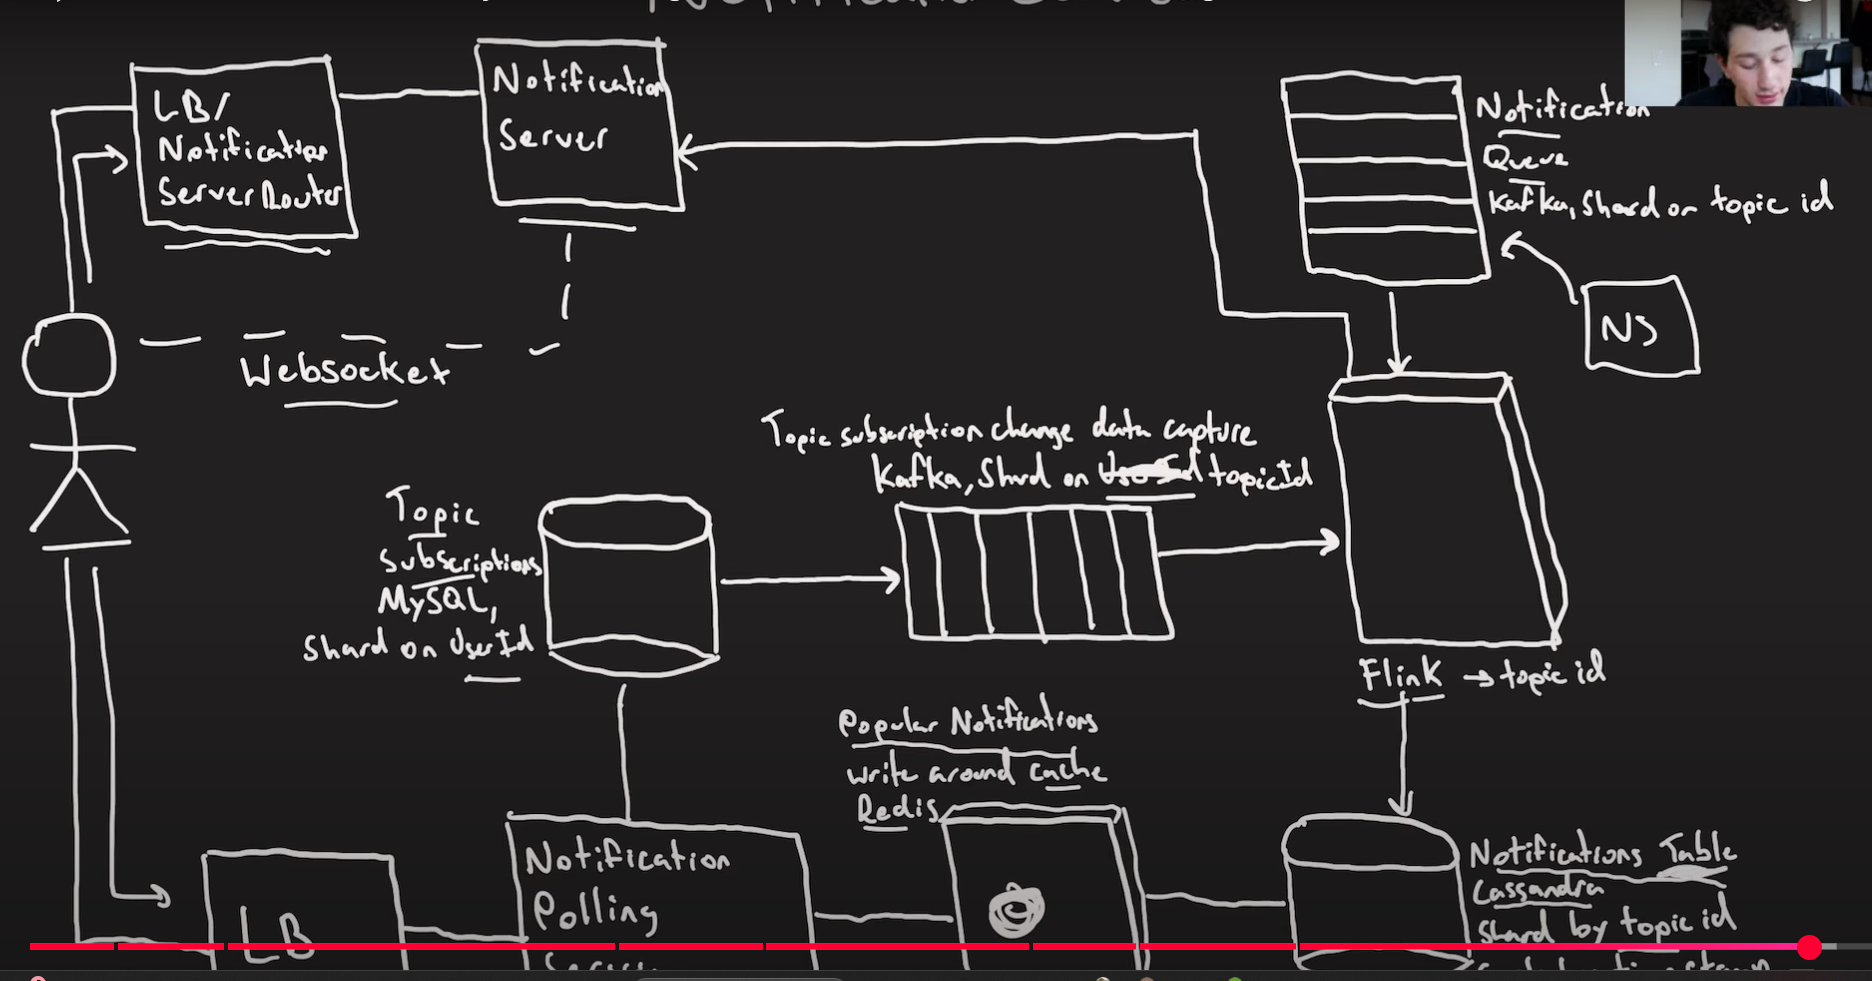 LB/
Notification
Server Router
Notification
Server
Notification
Queue
Kafka, Shard on topic id
NS
Websocket
Topic subscription change data capture
Kafka, Shard on topicId
Topic
Subscriptions
MySQL,
Shard on UserId
Flink → topic id
Popular Notifications
write around cache
Redis
Notification
Polling
LB
Notifications Table
Cassandra
Shard by topic id